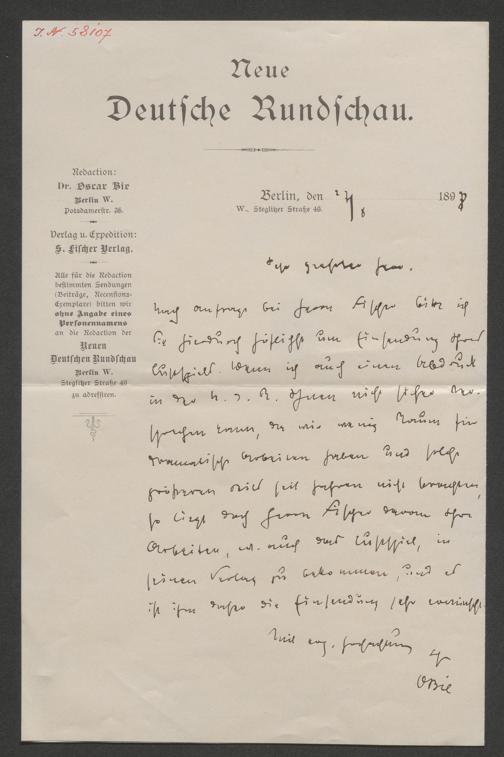 J. N. 58107
Neue
Deutsche Rundschau.
Redaction:
Dr. Oscar Bie
Berlin W.
Potsdamerstr.
Verlag u. Expedition:
S. Fischer Verlag.
Alle für die Redaction
bestimmten Sendungen
(Beiträge, Recensions-
Exemplare) bitten wir
ohne Angabe eines
Personennamens
an die Redaction der
Neuen
Deutschen Rundschau
Berlin W.
Steglitzer Straße 49
zu adressiren.
Berlin, den 189
W., Steglitzer Straße 49.
Sehr geehrter Herr.
Nach Anfrage bei Herrn Fischer bitte ich
Sie hierdurch höflichst um Einsendung Ihres
Lustspiels. Wenn ich auch einen Abdruck
in der N. D. R. Ihnen nicht sicher ver-
sprechen kann, da wir wenig Raum für
dramatische Arbeiten haben und solche
größeren seit Jahren nicht brachten,
so liegt doch Herrn Fischer daran Ihre
Arbeiten, auch das Lustspiel, in
seinen Verlag zu bekommen, und es
ist ihm daher die Einsendung sehr erwünscht.
Mit Hochachtung
Ihr
OBie